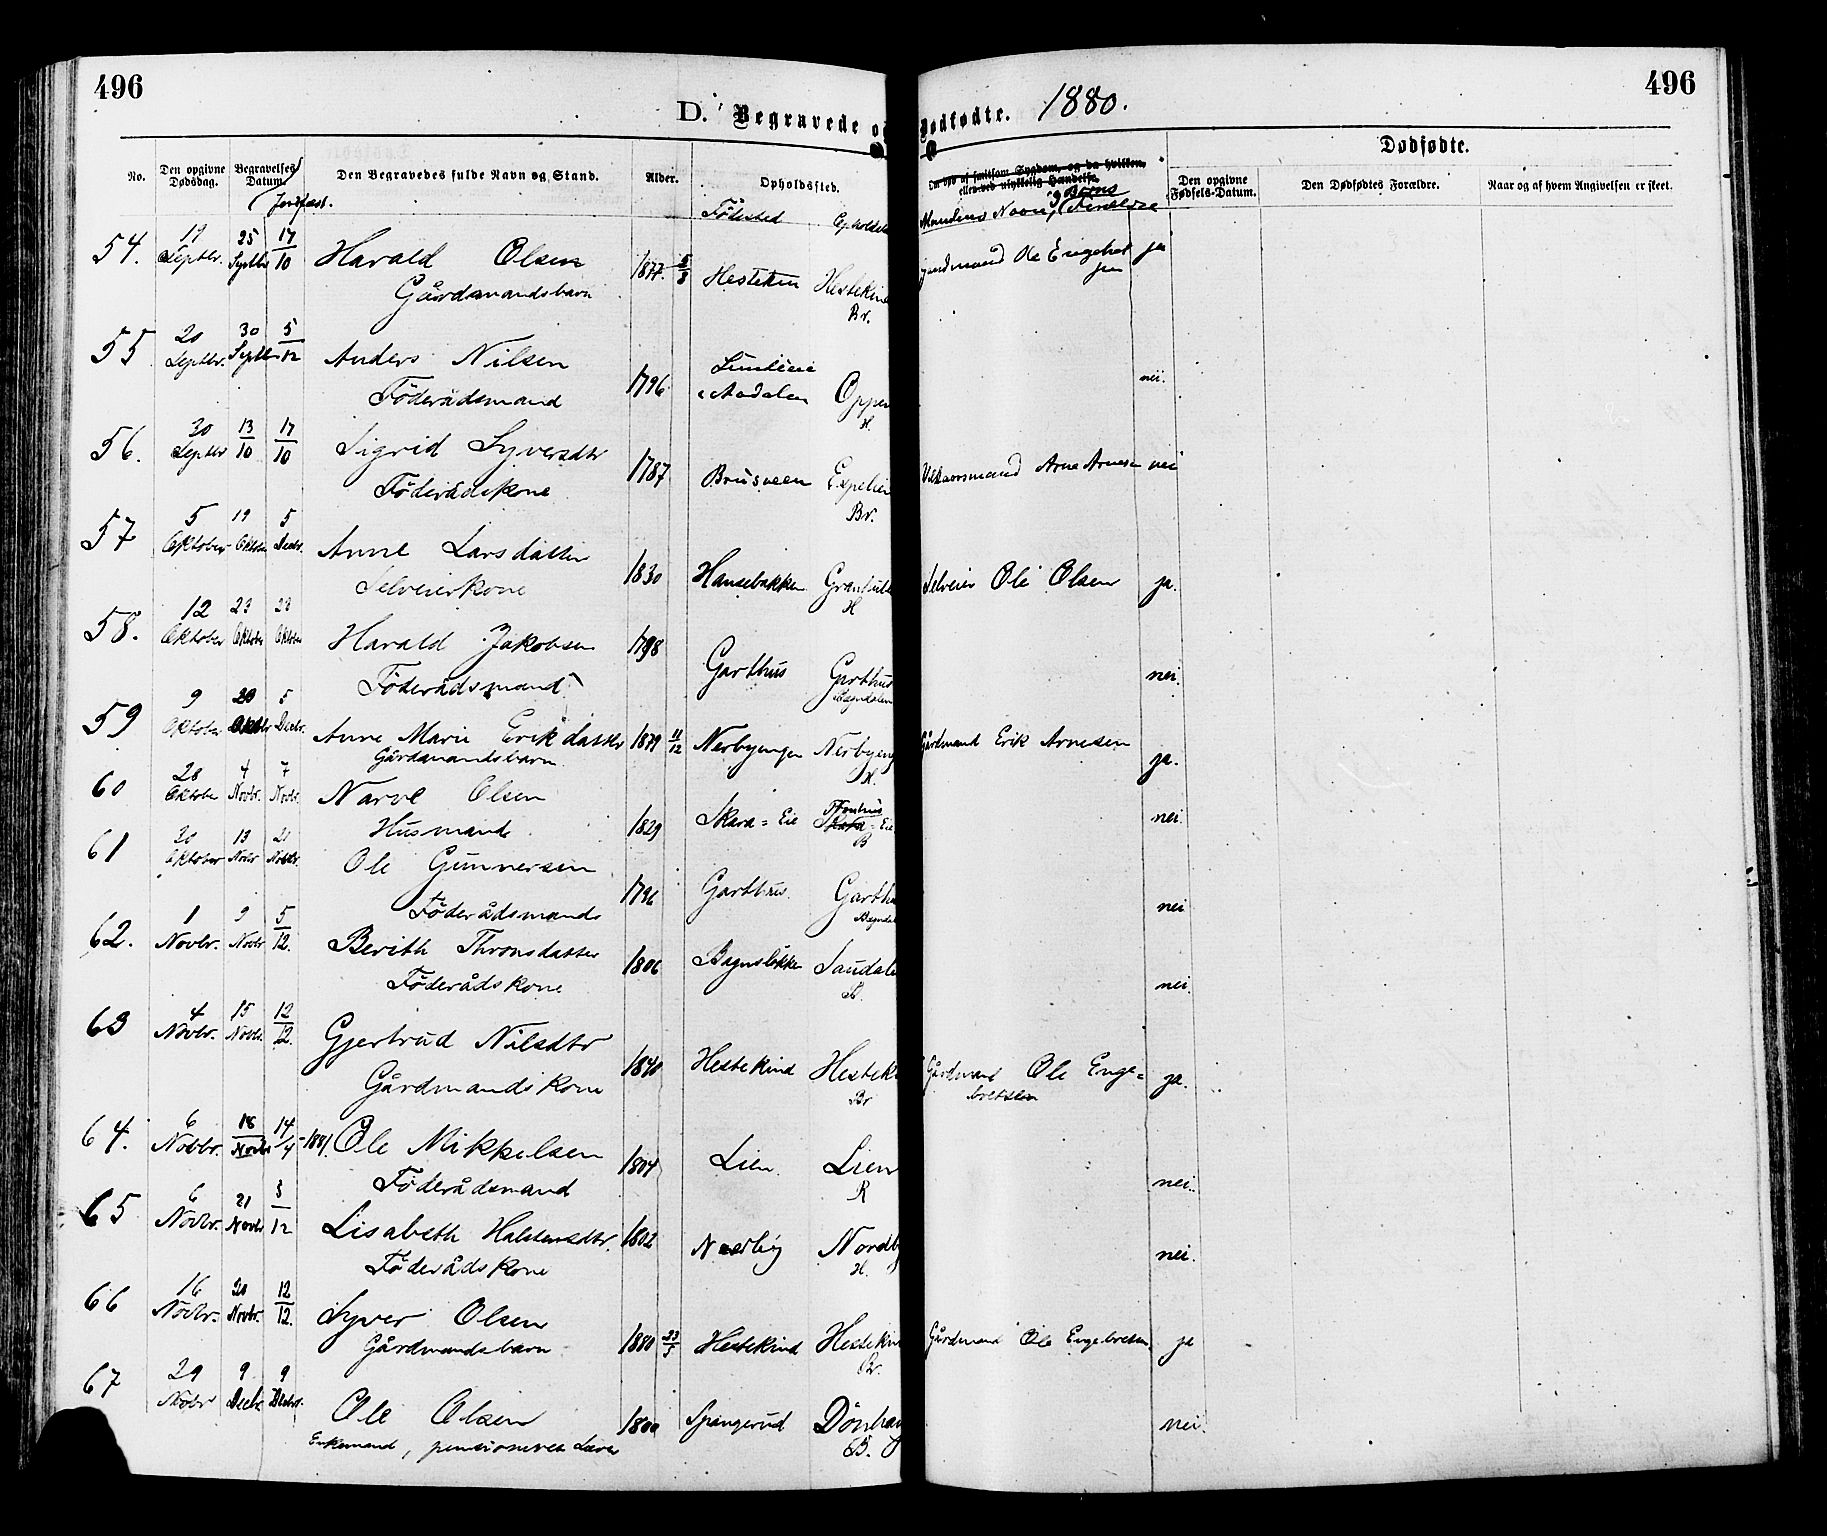 496
496
D. Begravede o
Dødfødte. 1880.
Dødfødte.
No.
Den opgivne Dødsdag.
Begravelses Datum.
Jordfæst.
Den Begravedes fulde Navn og Stand.
Alder.
Opholdsted.
Födested
Opholdst
Om død af smitsom Sygdom, og da hvilken, eller ved ulykkelig Hændelse.
Mandens Navn, Forældre
Den opgivne Fødsels-Datum.
Den Dødfødtes Forældre.
Naar og af hvem Angivelsen er skeet.
54. 19 Septbr. 25 Septbr 17/10 Harald Olsen 1877. 5/8 Hestekin Hestekin Br. Gaardmand Ole Engebret ja
Gårdmandsbarn
55 20 Septbr. 30 Septbr 5/12 Anders Nilsen 1796 i Aadalen Oppen H. nei.
Föderådsmand
56. 30 Septbr 13/10 17/10 Sigrid Syversdtr 1787 Brusveen Br. Arne Arnesen nei
Föderådskone
57 5 Oktober 19 Oktober 5 Decbr. Anne Larsdatter 1830 Hansebakken H Selveier Ole Olsen ja.
Selveierkone
58. 12 Oktober 23 Oktober 23 Oktober Harald Jakobsen 1798 Garthus Garthus Bagndalen nei.
Föderådsmand
59 9 Oktober 20 Oktbr 5 Decbr. Anne Marie Erikdatter 1879 11/12 Nerbyengen Nerbyeng H. Gårdmand Erik Arnesen ja.
Gårdmandsbarn
60 28 Oktober 4 Novbr. 7 Novbr. Narve Olsen 1829 Skara = Eie = Eie B nei.
Husmand
61 30 Oktober 13 Novbr 21 Novbr. Ole Gunnersen 1796 Garthus. Garthu Bagndal nei
Föderådsmand
62. 1 Novbr. 9 Novbr 5/12. Berith Thronsdatter 1806 Bagnsløkken Saudale nei.
Föderådskone
63 4 Novbr. 15 Novbr. 12/12. Gjertrud Nilsdtr 1840 Hestekind Hesteki Br Gårdmand Ole Enge= ja.
Gårdmandskone bretsen
64. 6 Novbr. 18 Novbr 14/4 - 1881. Ole Mikkelsen 1804 Lien. Lien R nei.
Föderådsmand
65 6 Novbr. 21 Novbr 5/12 Lisabeth Halstensdtr. 1802 Nordby Nordby H. nei.
Föderådskone
66 16 Novbr. 20 Novbr. 12/12. Syver Olsen 1880 23/5 Hestekind Hestekin Br. Gårdmand Ole Engebretsen ja
Gårdmandsbarn
67 29 Novbr 9 Decbr. 9 Decbr. Ole Olsen 1800 Spangerud Dönhaug B. nei.
Enkemand, pensioneret Lærer